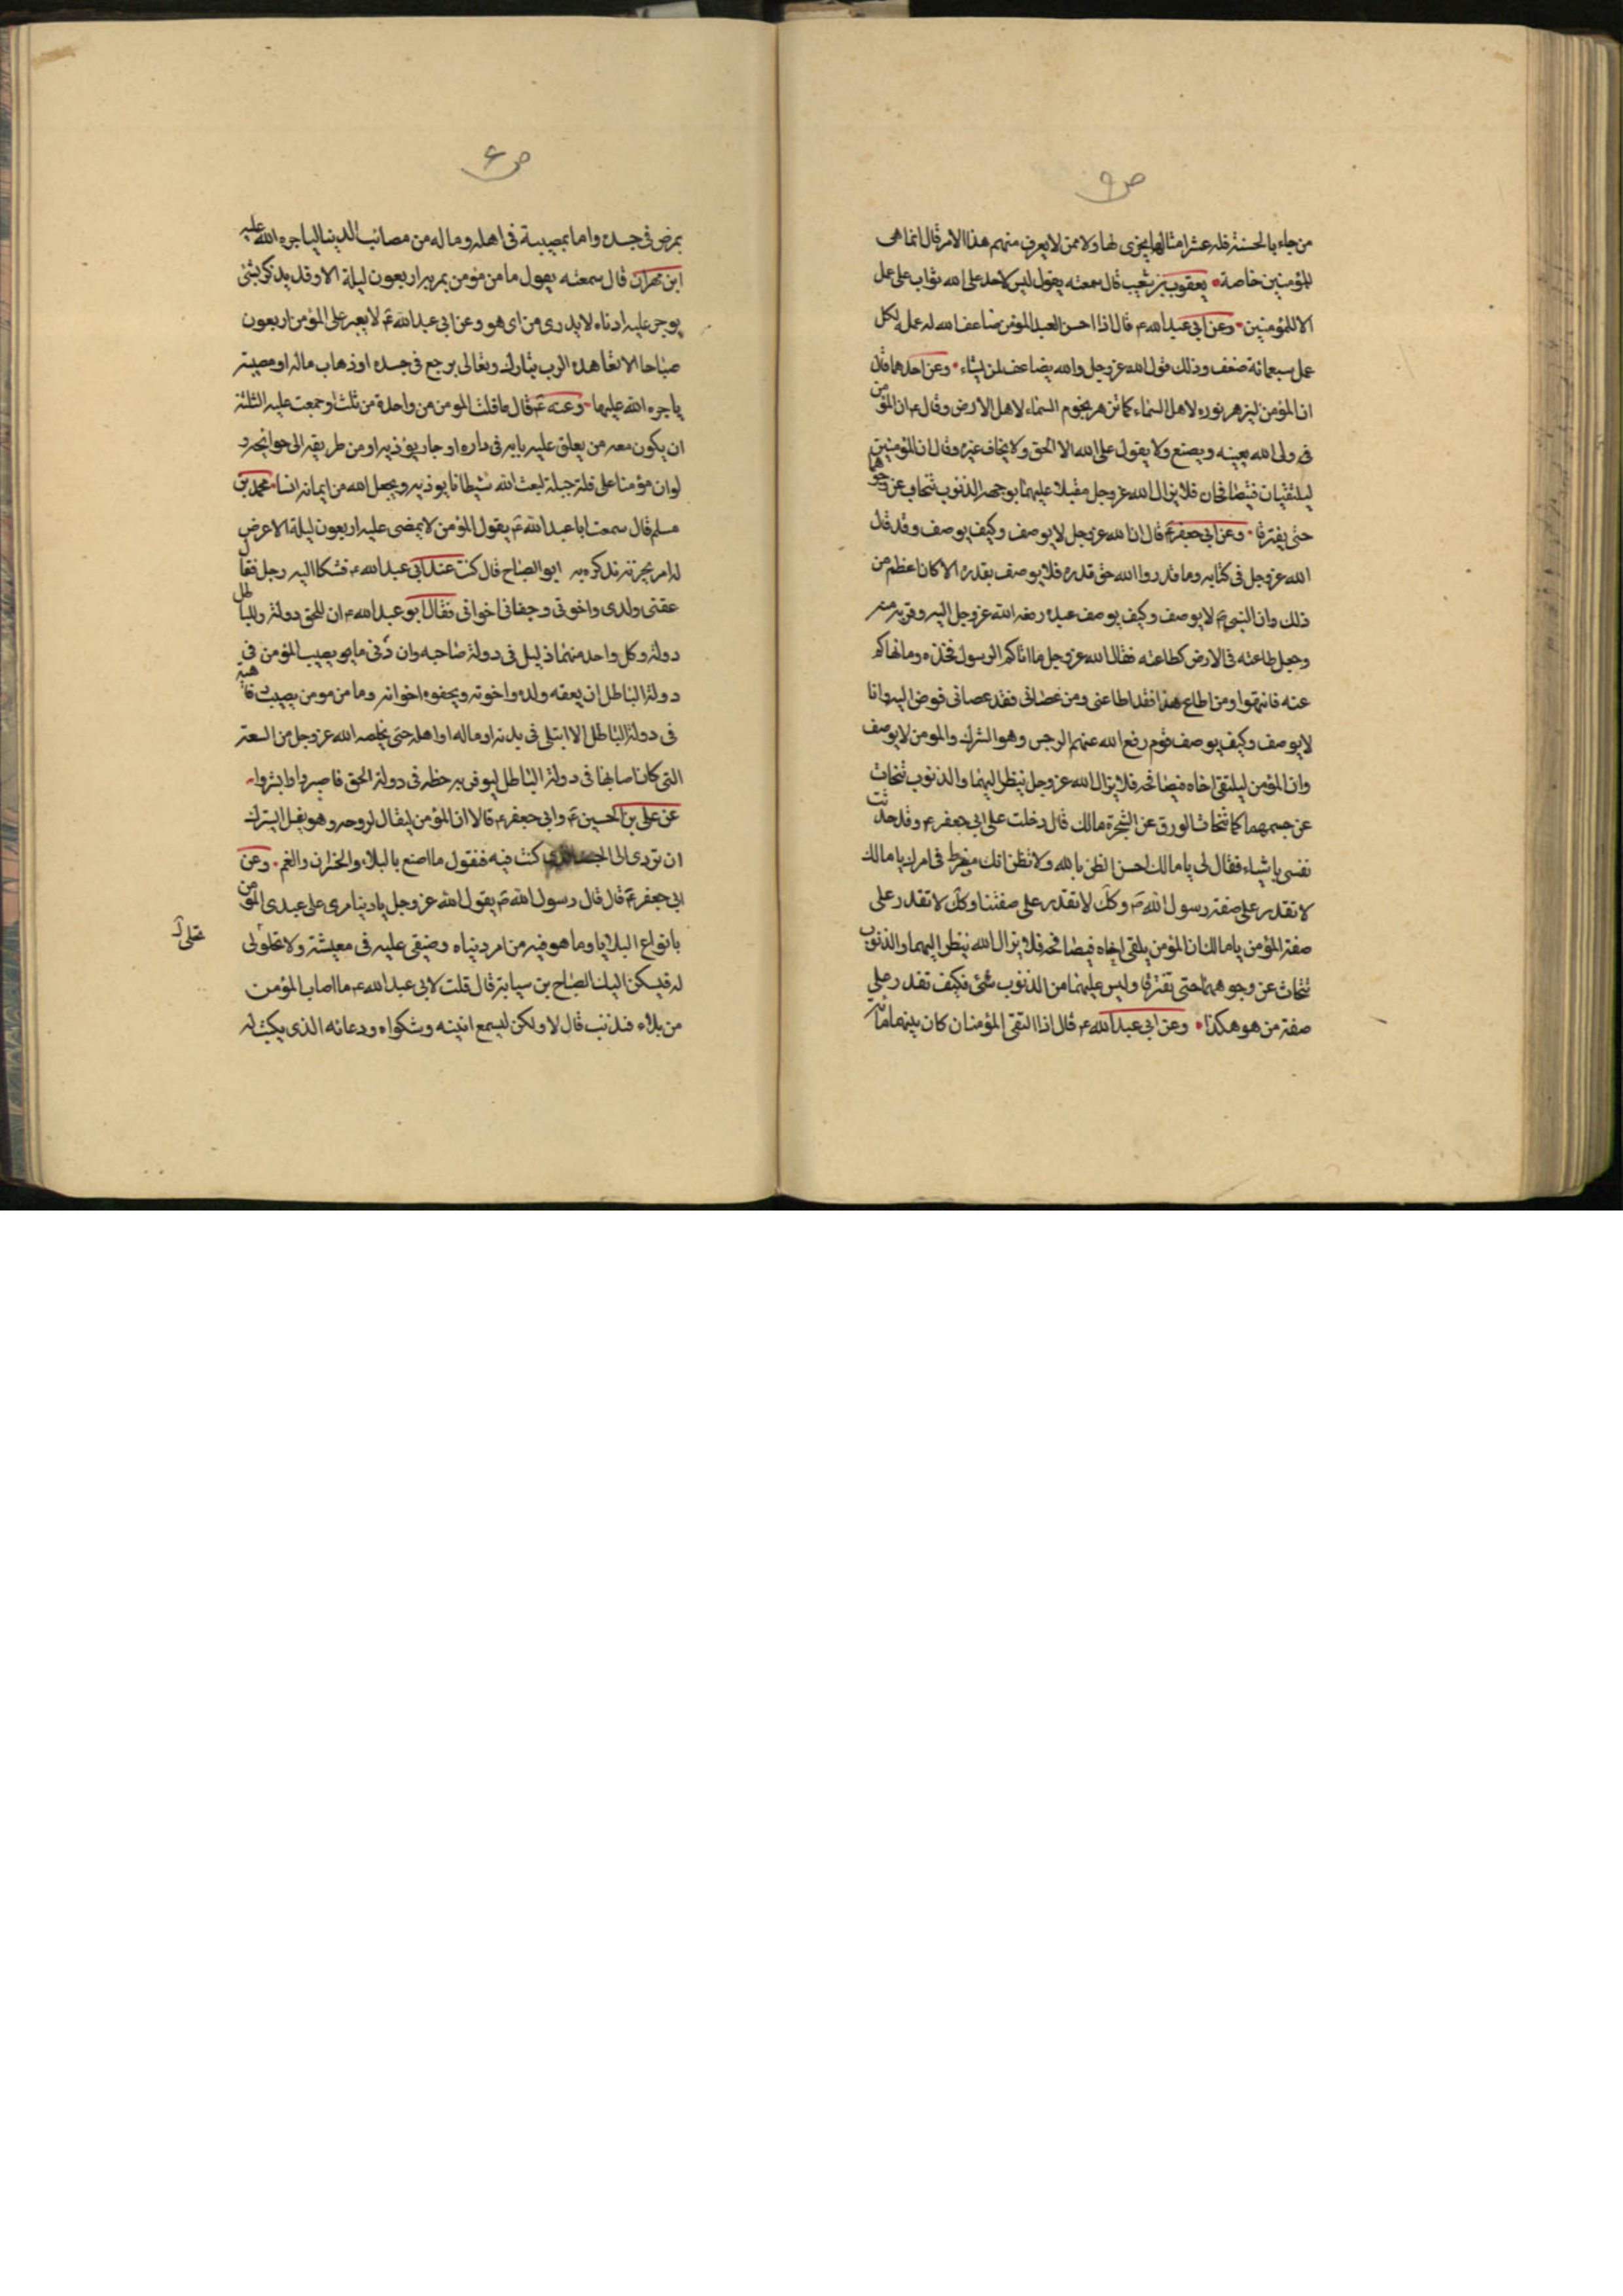 ص ٩
من جاء بالحسنة فله عشر امثالها يجزى لها ولا ممن لا يعرف منهم هذا الامر قال انما هى
للمؤمنين خاصة • يعقوب بن شعيب قال سمعته يقول ليس لاحد على الله ثواب على عمل
الا للمؤمنين • وعن ابى عبد الله ع قال اذا احسن العبد المؤمن ضاعف الله له عمله لكل
عمل سبعمائة ضعف وذلك قول الله عز وجل والله يضاعف لمن يشاء • وعن احدهما قال
ان المؤمن ليزهر نوره لاهل السماء كما تزهر نجوم السماء لاهل الارض وقال ع ان المؤمن
فى ولى الله يعينه ويصنع ولا يقول على الله الا الحق ولا يخاف غيره وقال ان المؤمنين
ليلتقيان فيتصافحان فلا يزال الله عز وجل مقبلا عليهما بوجهه والذنوب تتحات عن وجوهما
حتى يفترقا • وعن ابى جعفر ع قال ان الله عز وجل لا يوصف وكيف يوصف وقد قال
الله عز وجل فى كتابه وما قدروا الله حق قدره فلا يوصف بقدره الا كان اعظم من
ذلك وان النبى ص لا يوصف وكيف يوصف عبد رفعه الله عز وجل اليه وقربه منه
وجعل طاعته فى الارض كطاعته فقال الله عز وجل ما اتاكم الرسول فخذه وما نهاكم
عنه فانتهوا ومن اطاع هذا فقد اطاعنى ومن عصانى فقد عصانى فوض اليه وانا
لا يوصف وكيف يوصف قوم رفع الله عنهم الرجس وهو الشرك والمومن لا يوصف
وان المؤمن ليلتقى اخاه فيصافحه فلا يزال الله عز وجل ينظر اليهما والذنوب تتحات
عن جسمهما كما تتحات الورق عن الشجرة مالك قال دخلت على ابى جعفر ع وقد حدثت
نفسى باشياء فقال لى يا مالك احسن الظن بالله ولا تظن انك مفرط فى امرك يا مالك
لا تقدر على صفة رسول الله ص وكك لا تقدر على صفتنا وكك لا تقدر على
صفة المؤمن يا مالك ان المؤمن يلقى اخاه فيصافحه فلا يزال الله ينظر اليهما والذنوب
تتحات عن وجوههما حتى تفترقا وليس عليهما من الذنوب شئ فكيف تقدر على
صفة من هو هكذا • وعن ابى عبد الله ع قال اذا التقى المؤمنان كان بينهما مائة
ص ۶
بمرض فى جسده واما بمصيبة فى اهله وماله من مصائب الدنيا لياجره الله عليه
ابن مهران قال سمعته يقول ما من مؤمن يمر به اربعون ليلة الا وقد يذكر بشئ
يوجر عليه ادناه لا يدرى من اى هو وعن ابى عبد الله ع لا يعبر على المؤمن اربعون
صباحا الا تعاهده الرب تبارك وتعالى بوجع فى جسده او ذهاب ماله او مصيبة
ياجره الله عليها • وعنه ع قال ما فلت المومن من واحدة من ثلث او جمعت عليه الثلثة
ان يكون معه من يعلق عليه بابه فى داره او جار يؤذيه او من طريقه الى حوائجه
لو ان مؤمنا على قلة جبلة لبعث الله شيطانا يوذيه ويجعل الله من ايمانه انسا • محمد بن
مسلم قال سمعت ابا عبد الله ع يقول المؤمن لا يمضى عليه اربعون ليلة الا عرض
له امر يحزنه تذكره به ابو الصباح قال كنت عند ابى عبد الله ع فشكا اليه رجل فقال
عقنى ولدى واخوتى وجفانى اخوانى فقال ابو عبد الله ع ان للحق دولة وللباطل
دولة وكل واحد منهما ذليل فى دولة صاحبه وان ادنى ما يصيب المؤمن فى
دولة الباطل ان يعقه ولده واخوته ويجفوه اخوانه وما من مومن يصيب رفاهية
فى دولة الباطل الا ابتلى فى بدنه او ماله او اهله حتى يخلصه الله عز وجل من السعة
التى كان اصابها فى دولة الباطل ليوفر به حظه فى دولة الحق فاصبروا وابشروا •
عن على بن الحسين ع وابى جعفر ع قالا ان المؤمن ليقال لروحه وهو يغسل ايسرك
ان تردى الى الجسد الذى كنت فيه فتقول ما اصنع بالبلاء والخسران والغم • وعن
ابى جعفر ع قال قال رسول الله ص يقول الله عز وجل يا دنيا مرى على عبدى المؤمن
بانواع البلايا وما هو فيه من امر دنياه وضيقى عليه فى معيشته ولا تحلولى
تحلى لـ
له فيسكن اليك الصباح بن سيابة قال قلت لابى عبد الله ع ما اصاب المؤمن
من بلاء فبذنب قال لا ولكن ليسمع انينه وشكواه ودعائه الذى يكتب له